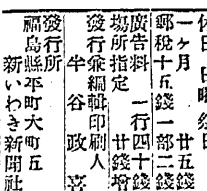 休日 日曜 祭日
一ヶ月 廿五錢
郵税十五錢一部二錢
廣告料 一行四十錢
場所指定 廿錢增
發行兼編輯印刷人
半谷政喜
發行所
福島縣平町大町五
新いわき新聞社